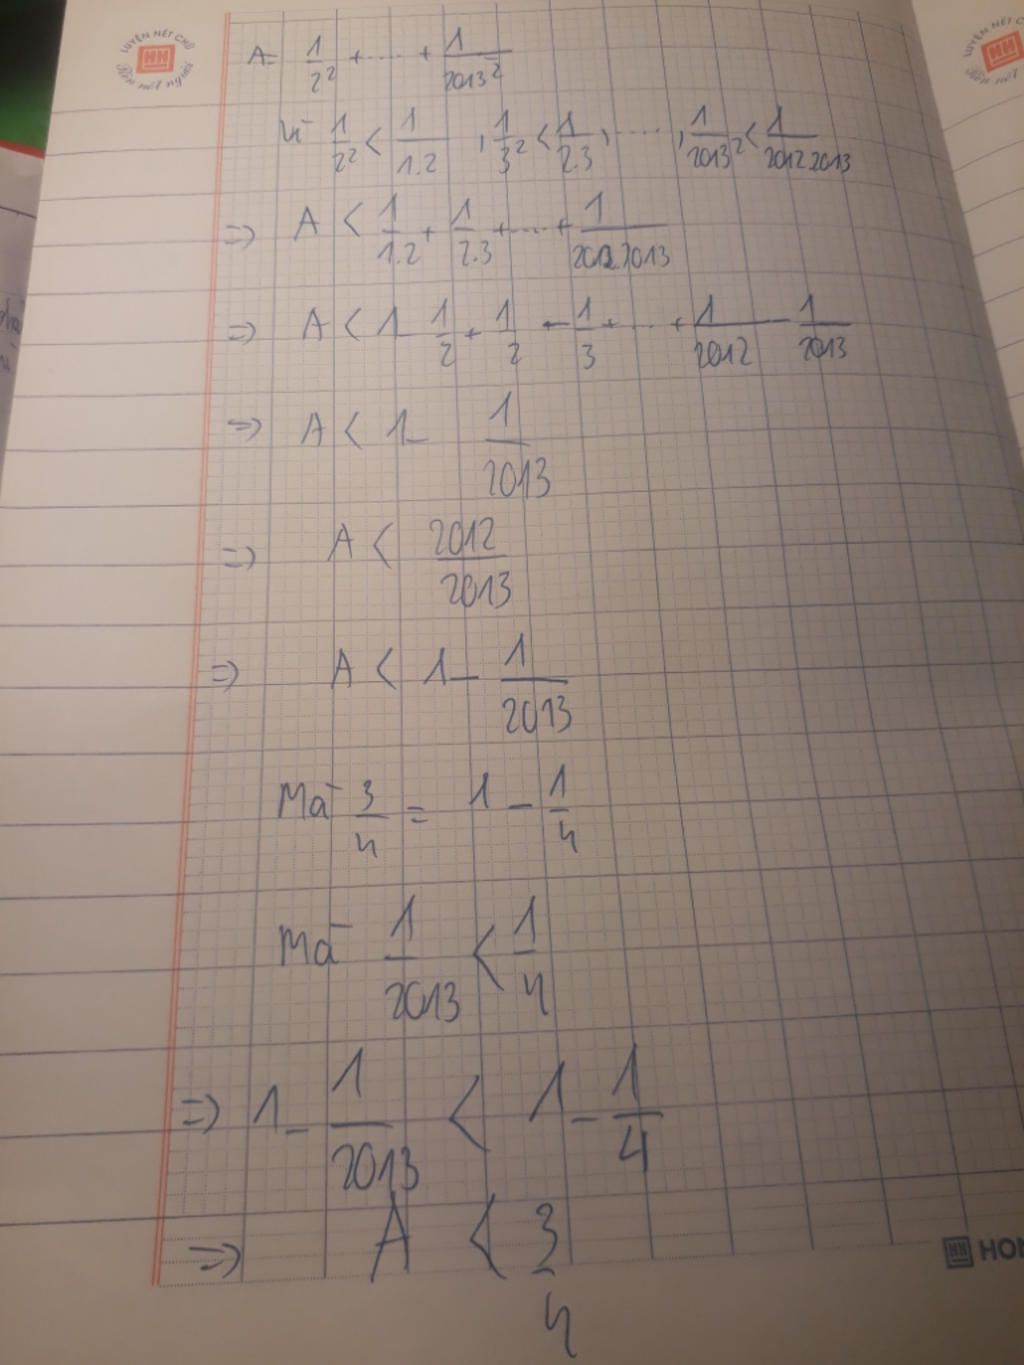 LUYỆN NÉT CHỮ
Rèn nết người
A = 1/2² + ..... + 1/2013²
Vì 1/2² < 1/1.2 , 1/3² < 1/2.3 , ..... , 1/2013² < 1/2012.2013
=> A < 1/1.2 + 1/2.3 + ..... + 1/2012.2013
=> A < 1 - 1/2 + 1/2 - 1/3 + ..... + 1/2012 - 1/2013
=> A < 1 - 1/2013
=> A < 2012/2013
=> A < 1 - 1/2013
Mà 3/4 = 1 - 1/4
Mà 1/2013 < 1/4
=> 1 - 1/2013 < 1 - 1/4
=> A < 3/4